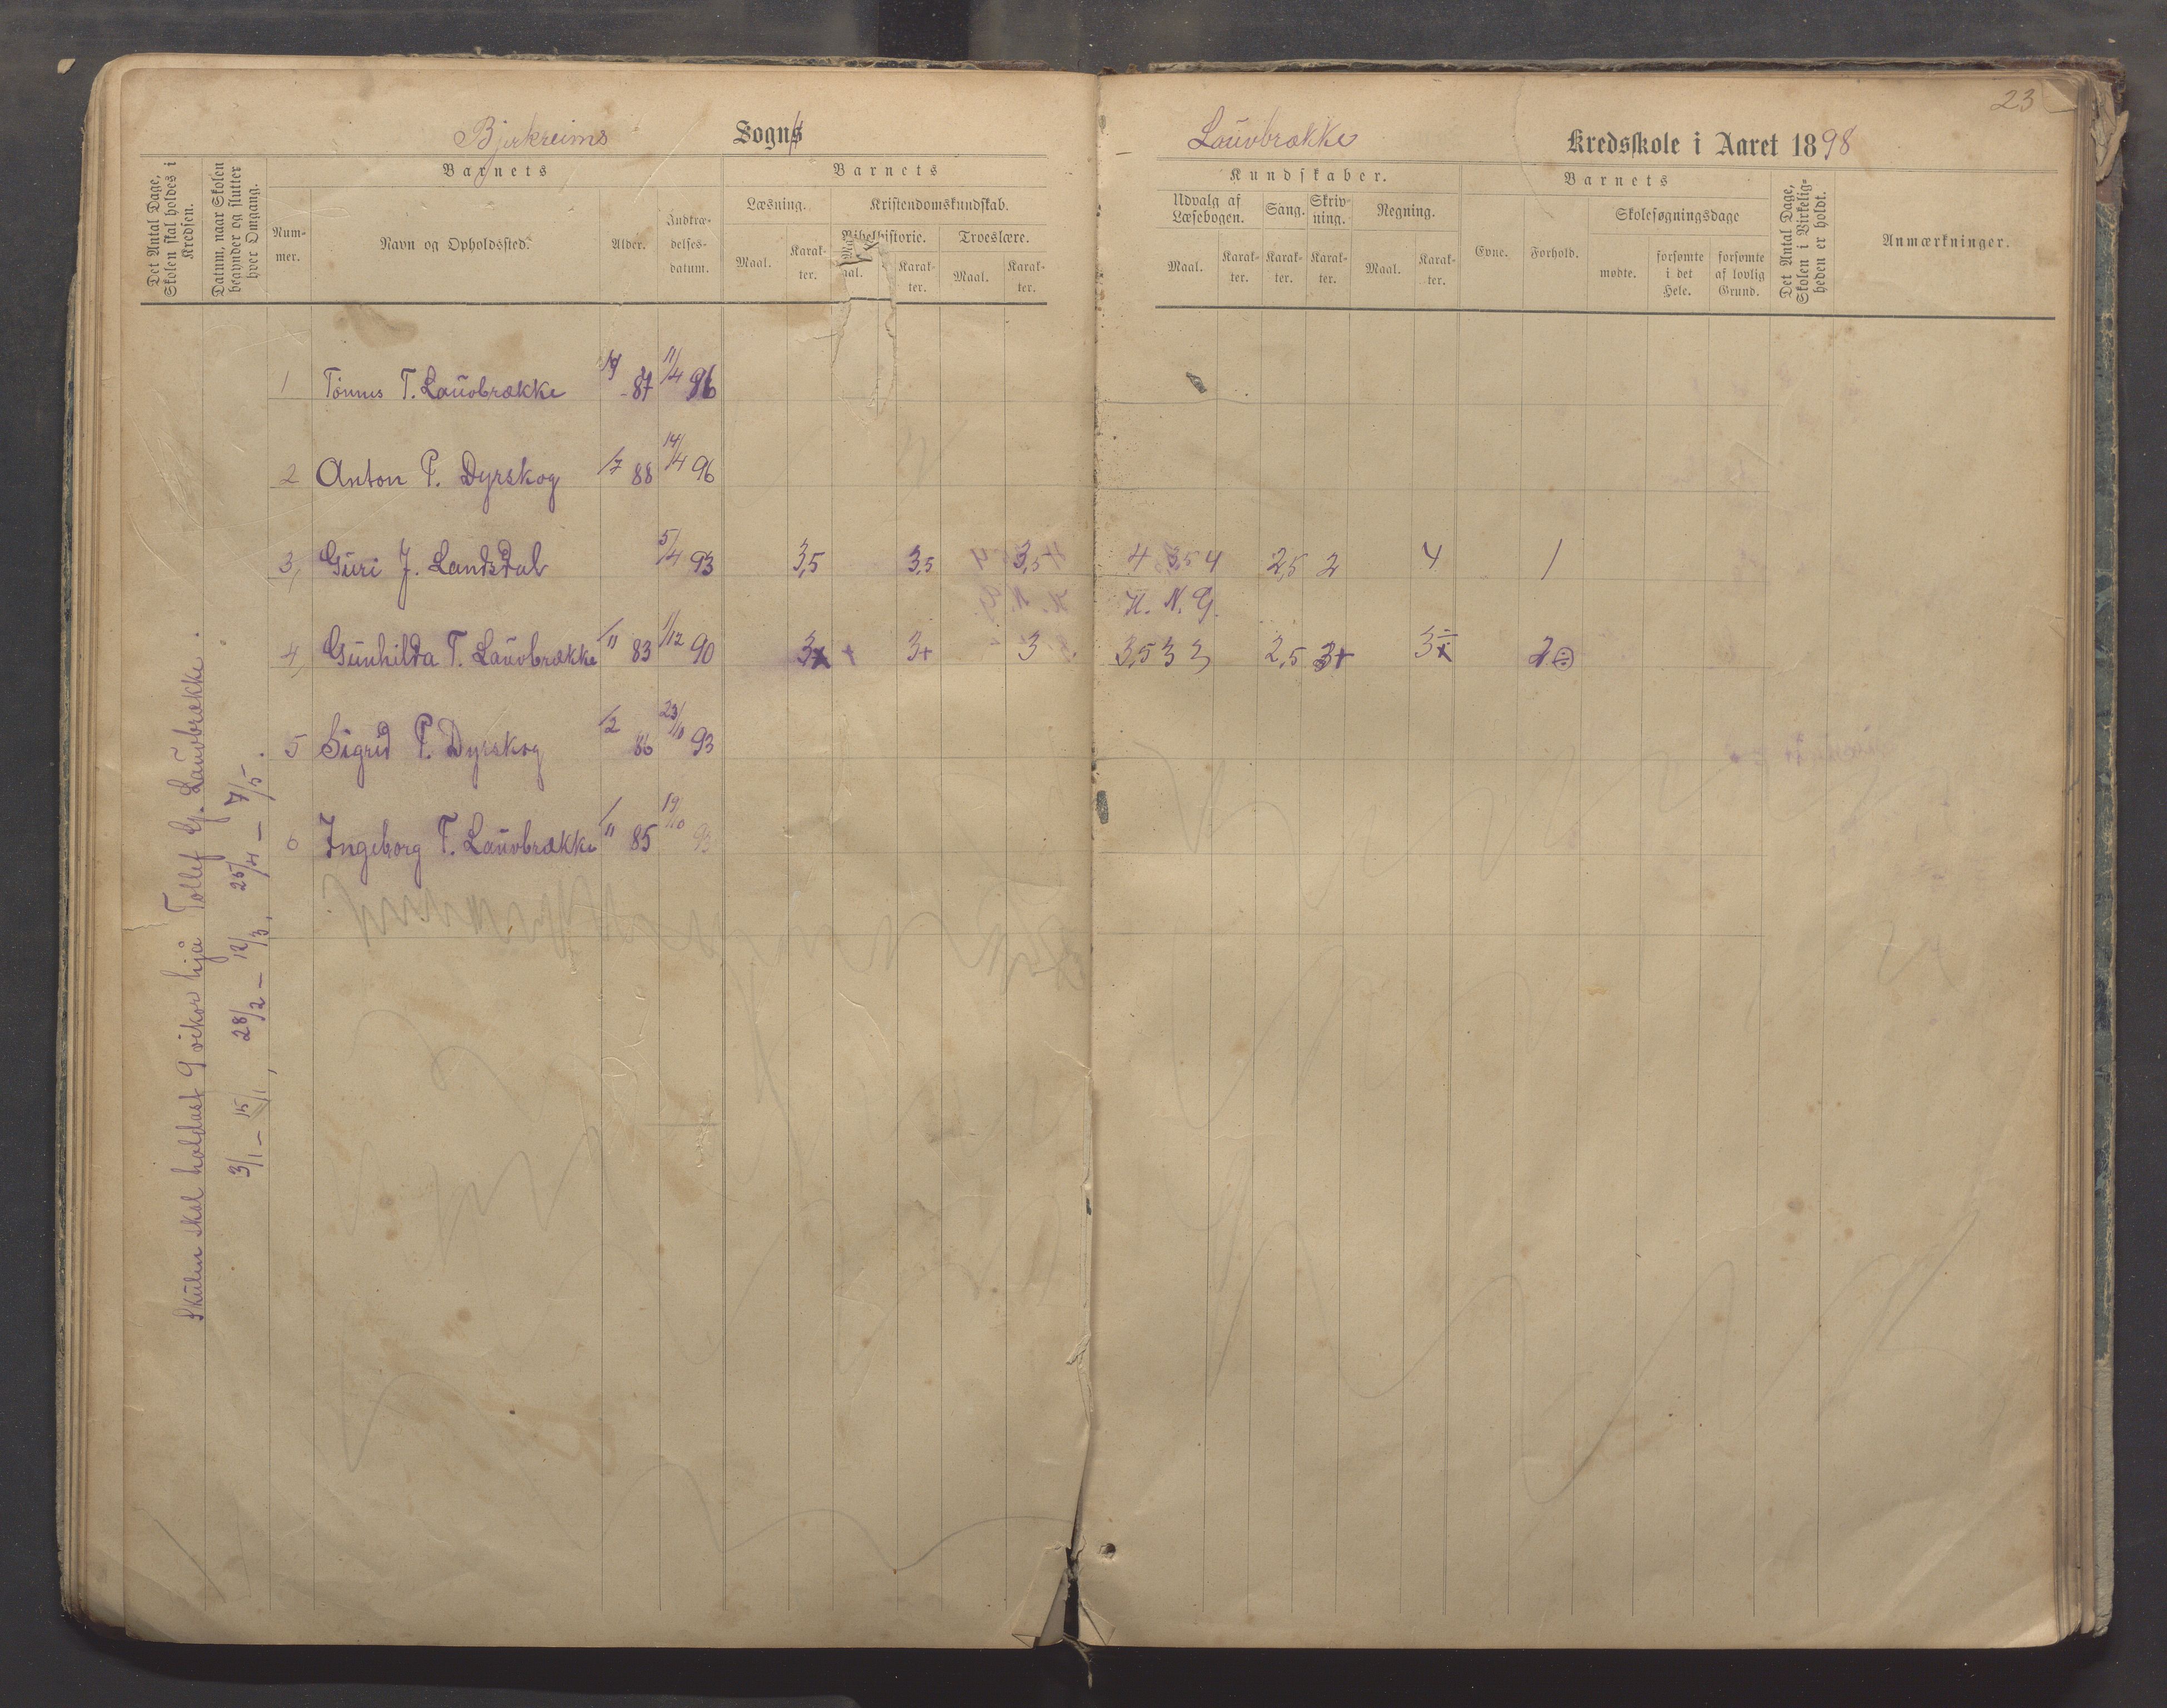 23
Bjerkreims Sogns
Lauvbrække Kredsskole i Aaret 1898
Det Antal Dage, Skolen skal holdes i Kredsen.
Datum, naar Skolen begynder og slutter hver Omgang.
Barnets
Nummer.
Navn og Opholdssted.
Alder.
Indtrædelsesdatum.
Barnets
Læsning.
Maal.
Karakter.
Kristendomskundskab.
Bibelhistorie.
Maal.
Karakter.
Troeslære.
Maal.
Karakter.
Kundskaber.
Udvalg af Læsebogen.
Maal.
Karakter.
Sang.
Karakter.
Skrivning.
Karakter.
Regning.
Maal.
Karakter.
Barnets
Evne.
Forhold.
Skolesøgningsdage
mødte.
forsømte i det Hele.
forsømte af lovlig Grund.
Det Antal Dage, Skolen i Virkeligheden er holdt.
Anmærkninger.
Skulen skal haldast 9 vikor hjå Tollef G. Lauvbrække.
3/1 – 15/1, 28/2 – 12/3, 25/4 – 7/5.
1 Tönnes T. Lauvbrække 87 11/4 96
2 Anton P. Dyrskog /7 88 14/4 96
3, Guri J. Landsdal 5/4 93 3,5 3,5 3,5 4 3,5 4 2,5 2 4 1
H. N. G.
4, Gunhilda T. Lauvbrække /11 83 1/12 90 3+ 3+ 3 3,5 3 3 2,5 3+ 3 2
5 Sigrid P. Dyrskog /2 86 23/10 93
6 Ingeborg T. Lauvbrække /11 85 19/10 93